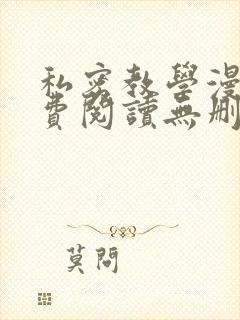 私密教學漫
費閱讀無刪
莫問